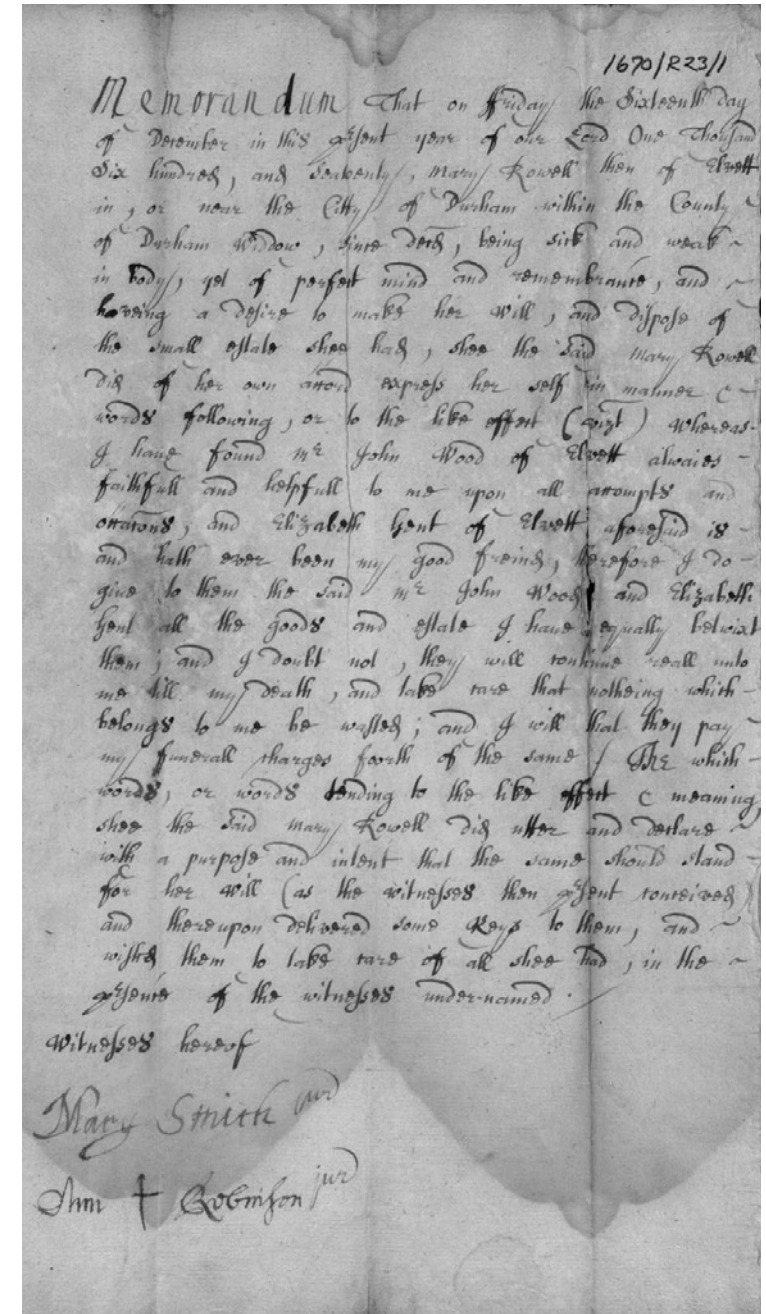 1670/R23/1
Memorandum That on ffriday the Sixteenth day
of December in this p'sent year of our Lord One Thousand
Six hundred, and Seaventy, Mary Rowell then of Elvett
in, or near the Citty of Durham within the County
of Durham Widdow, since decd, being sick and weak
in body, yet of perfect mind and remembrance, and
haveing a desire to make her will, and dispose of
the small estate shee had, shee the said Mary Rowell
did of her own accord express her self in manner &
words following, or to the like effect (vizt) Whereas
I have found Mr John Wood of Elvett alwaies
faithfull and helpfull to me upon all attempts and
occacons, and Elizabeth Hent of Elvett aforesaid is
and hath ever been my good freind, therefore I do
give to them the said Mr John Wood and Elizabeth
Hent all the goods and estate I have equally betwixt
them; and I doubt not, they will continue reall unto
me till my death, and take care that notheing which
belongs to me be wasted; and I will that they pay
my funerall charges foorth of the same / The which
words, or words tending to the like effect & meaning,
shee the said Mary Rowell did utter and declare
with a purpose and intent that the same should stand
for her will (as the witnesses then p'sent conceived)
and thereupon delivered some Keys to them, and
wished them to take care of all shee had, in the
p'sence of the witnesses under-named.
Witnesses hereof
Mary Smith jur
Ann + Robinson jur